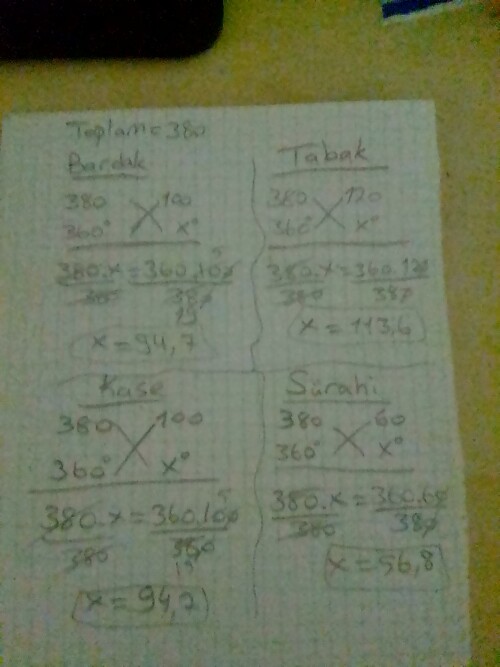 Toplam=380
Bardak
380 100
360° x°
380.x = 360.100
380 380
19
x=94,7
Tabak
380 120
360° x°
380.x = 360.120
380 380
x=113,6
Kase
380 100
360° x°
380.x = 360.100
380 380
19
x=94,7
Sürahi
380 60
360° x°
380.x = 360.60
380 380
x=56,8